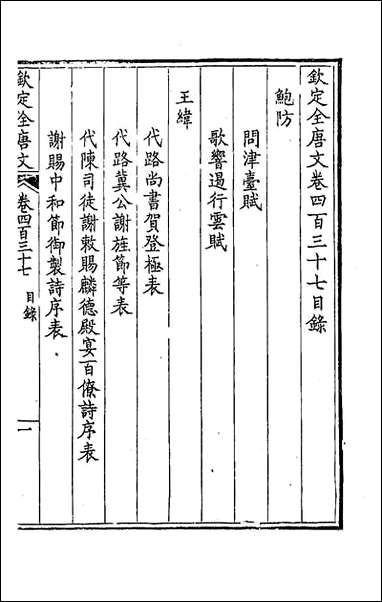 欽定全唐文卷四百三十七目錄
鮑防
問津臺賦
歌響遏行雲賦
王緯
代路尚書賀登極表
代路冀公謝旌節等表
代陳司徒謝敕賜麟德殿宴百僚詩序表
謝賜中和節御製詩序表
欽定全唐文 卷四百三十七 目錄 一